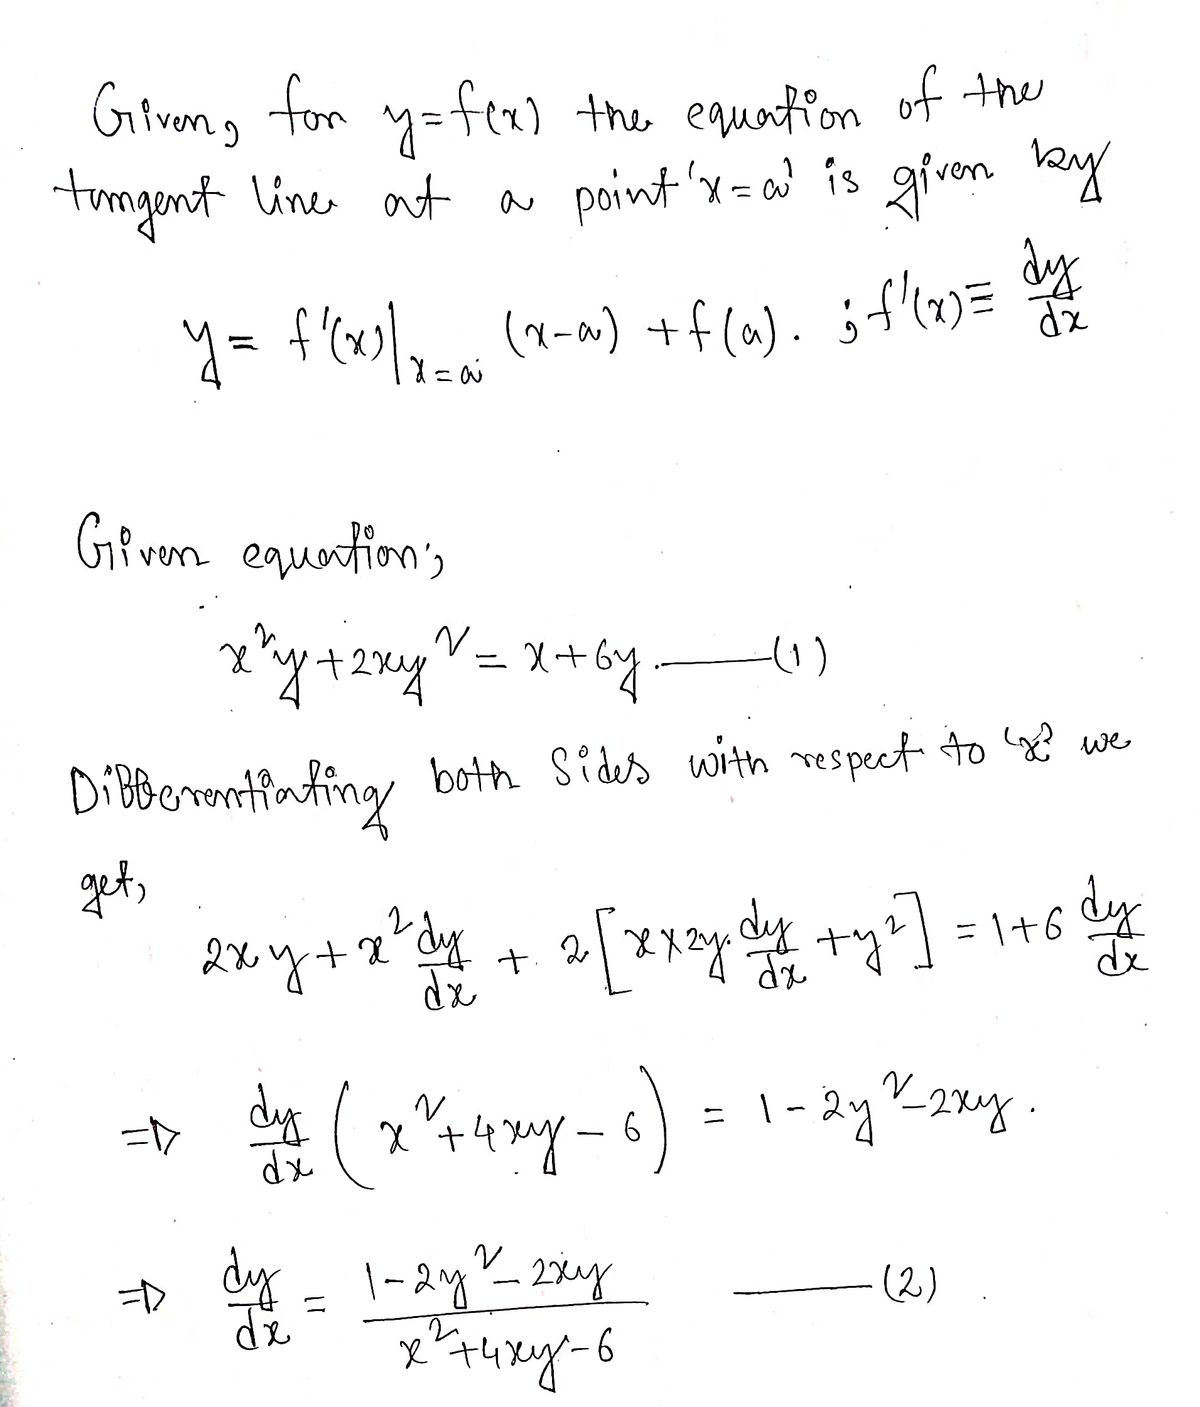 Given, for y=f(x) the equation of the
tangent line at a point 'x=a' is given by
y = f'(x)|ₓ₌ₐ (x-a) + f(a). ; f'(x) ≡ dy/dx
Given equation;
x²y + 2xy² = x + 6y. ——(1)
Differentiating both sides with respect to 'x' we
get,
2xy + x² dy/dx + 2[x×2y. dy/dx + y²] = 1+6 dy/dx
⇒ dy/dx (x²+4xy-6) = 1-2y²-2xy.
⇒ dy/dx = (1-2y²-2xy)/(x²+4xy-6) ——(2)